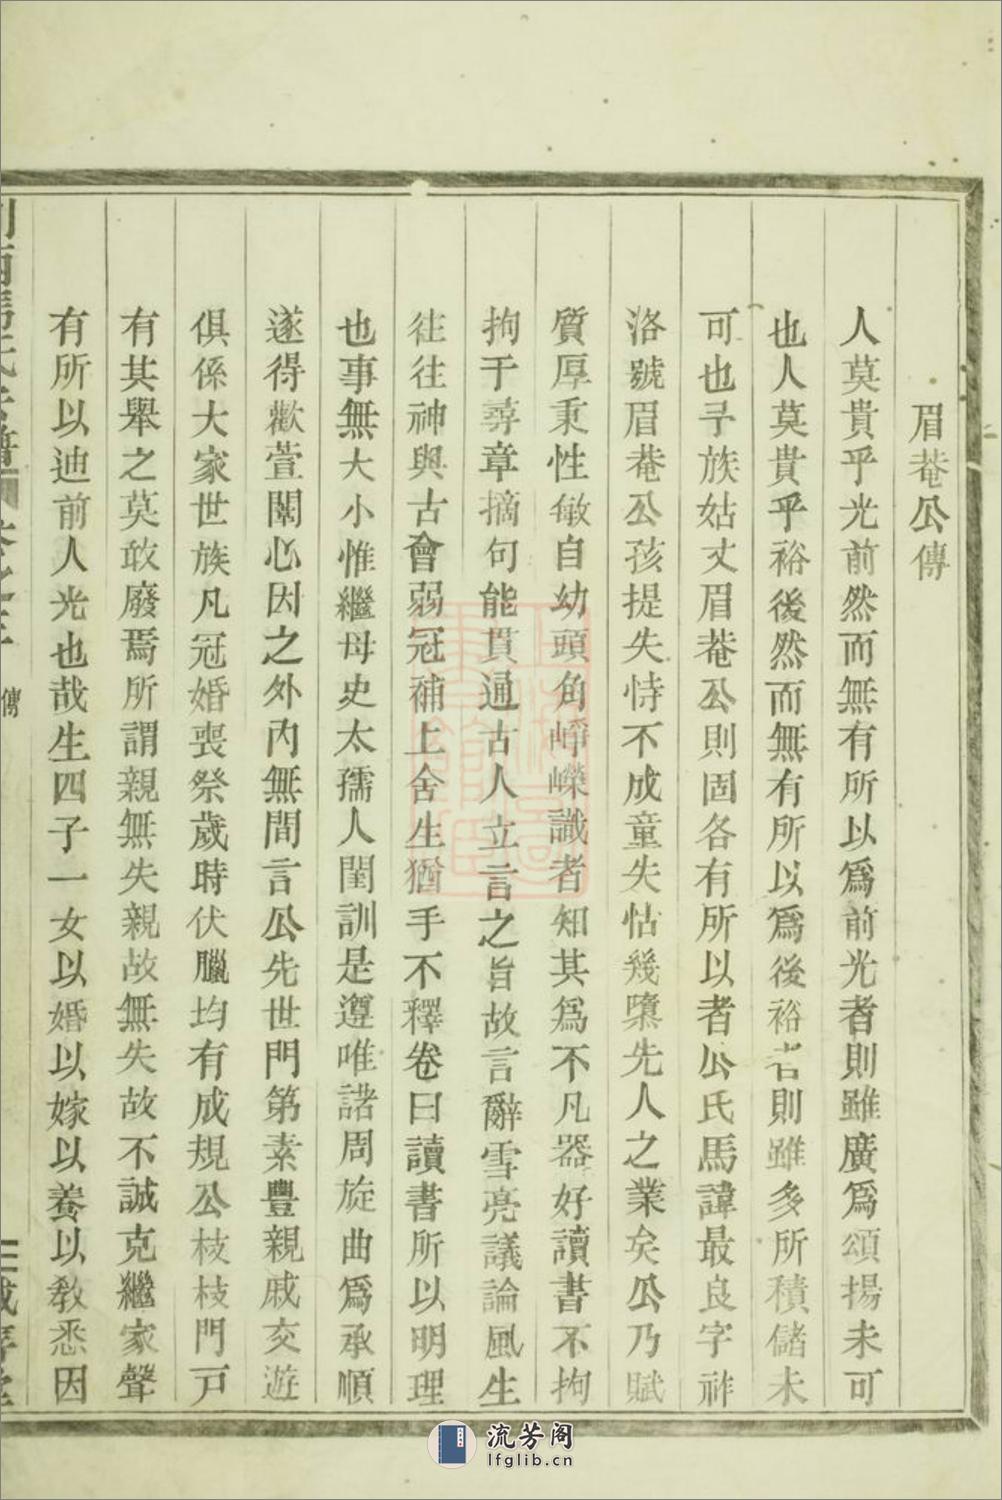 眉菴公傳
人莫貴乎光前然而無有所以爲前光者則雖廣爲頌揚未可
也人莫貴乎裕後然而無有所以爲後裕者則雖多所積儲未
可也予族姑丈眉菴公則固各有所以者公氏馬諱最良字祚
洛號眉菴公孩提失恃不成童失怙幾隳先人之業矣公乃賦
質厚秉性敏自幼頭角崢嶸識者知其爲不凡器好讀書不拘
拘于尋章摘句能貫通古人立言之旨故言辭雪亮議論風生
往往神與古會弱冠補上舍生猶手不釋卷曰讀書所以明理
也事無大小惟繼母史太孺人閨訓是遵唯諾周旋曲爲承順
遂得歡萱闈心因之外內無間言公先世門第素豐親戚交遊
俱係大家世族凡冠婚喪祭歲時伏臘均有成規公枝枝門戸
有其舉之莫敢廢焉所謂親無失親故無失故不誠克繼家聲
有所以迪前人光也哉生四子一女以婚以嫁以養以敎悉因
傳
流芳阁
lfglib.cn